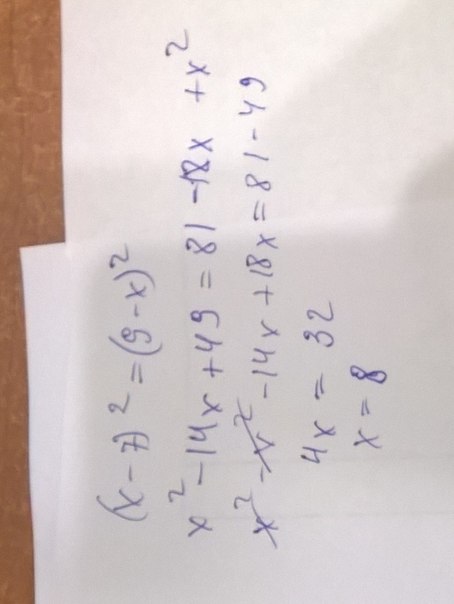 (x-7)² = (9-x)²
x² - 14x + 49 = 81 - 18x + x²
x² - x² - 14x + 18x = 81 - 49
4x = 32
x = 8